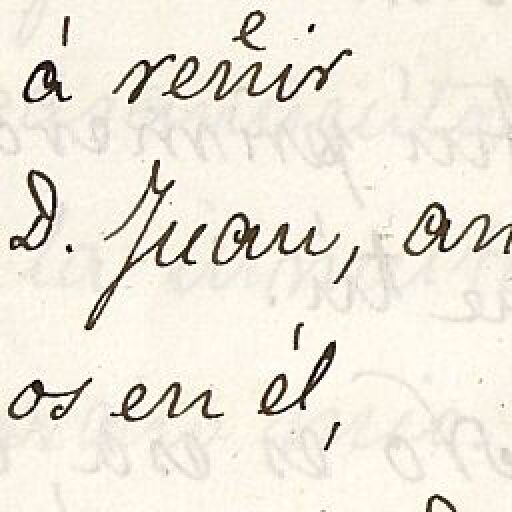 á reñir
D. Juan, an
os en él,